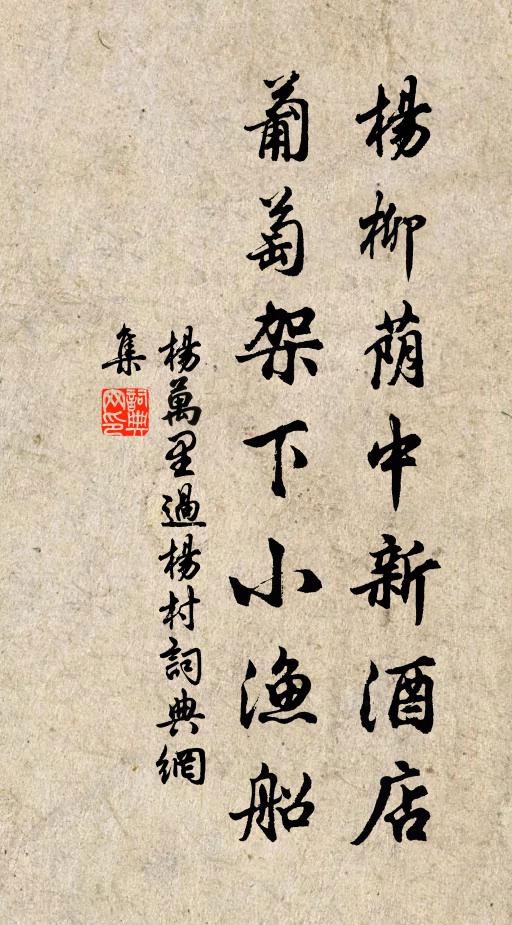 楊柳荫中新酒店
葡萄架下小漁船
楊萬里過楊村詞典網
集
詞典
网印